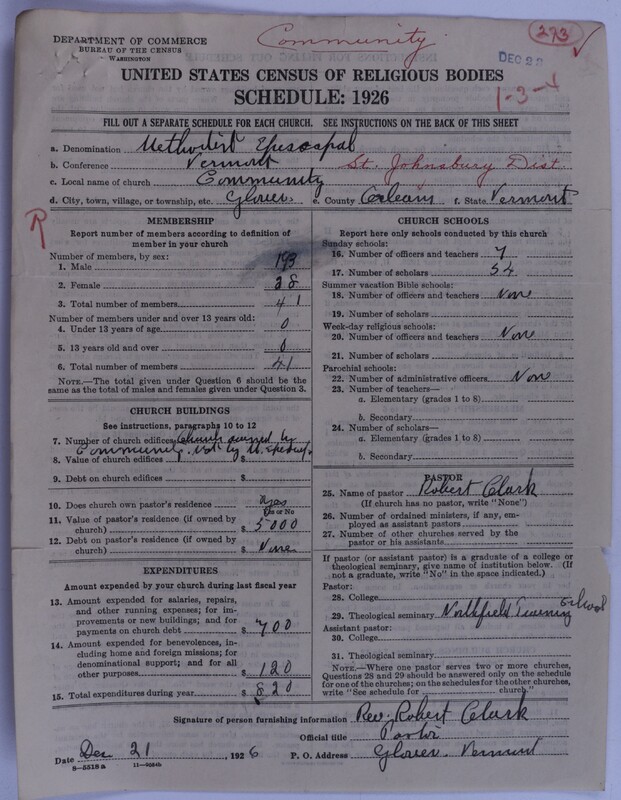 DEPARTMENT OF COMMERCE
BUREAU OF THE CENSUS
WASHINGTON
Community
293
DEC 22
UNITED STATES CENSUS OF RELIGIOUS BODIES
SCHEDULE: 1926
1-3-4
FILL OUT A SEPARATE SCHEDULE FOR EACH CHURCH. SEE INSTRUCTIONS ON THE BACK OF THIS SHEET
a. Denomination Methodist Episcopal
b. Conference Vermont St. Johnsbury Dist.
c. Local name of church Community
d. City, town, village, or township, etc. Glover. e. County Orleans f. State Vermont
R
MEMBERSHIP
Report number of members according to definition of member in your church
Number of members, by sex:
1. Male 13
2. Female 28
3. Total number of members 41
Number of members under and over 13 years old:
4. Under 13 years of age 0
5. 13 years old and over 0
6. Total number of members 41
NOTE.—The total given under Question 6 should be the same as the total of males and females given under Question 3.
CHURCH BUILDINGS
See instructions, paragraphs 10 to 12
7. Number of church edifices Church owned by
Community. Not by M.
8. Value of church edifices $
9. Debt on church edifices $
10. Does church own pastor's residence Yes
Yes or No
11. Value of pastor's residence (if owned by church) $ 5000
12. Debt on pastor's residence (if owned by church) $ None
EXPENDITURES
Amount expended by your church during last fiscal year
13. Amount expended for salaries, repairs, and other running expenses; for improvements or new buildings; and for payments on church debt $ 700
14. Amount expended for benevolences, including home and foreign missions; for denominational support; and for all other purposes $ 120
15. Total expenditures during year $ 820
CHURCH SCHOOLS
Report here only schools conducted by this church
Sunday schools:
16. Number of officers and teachers 7
17. Number of scholars 54
Summer vacation Bible schools:
18. Number of officers and teachers None
19. Number of scholars
Week-day religious schools:
20. Number of officers and teachers None
21. Number of scholars
Parochial schools:
22. Number of administrative officers None
23. Number of teachers—
a. Elementary (grades 1 to 8)
b. Secondary
24. Number of scholars—
a. Elementary (grades 1 to 8)
b. Secondary
PASTOR
25. Name of pastor Robert Clark
(If church has no pastor, write "None")
26. Number of ordained ministers, if any, employed as assistant pastors
27. Number of other churches served by the pastor or his assistants
If pastor (or assistant pastor) is a graduate of a college or theological seminary, give name of institution below. (If not a graduate, write "No" in the space indicated.)
Pastor:
28. College
29. Theological seminary Northfield Training School
Assistant pastor:
30. College
31. Theological seminary
NOTE.—Where one pastor serves two or more churches, Questions 28 and 29 should be answered only on the schedule for one of the churches; on the schedules for the other churches, write "See schedule for church."
Signature of person furnishing information Rev. Robert Clark
Official title Pastor
Date Dec 21 1926 P. O. Address Glover. Vermont
8—5518 a 11—9084b